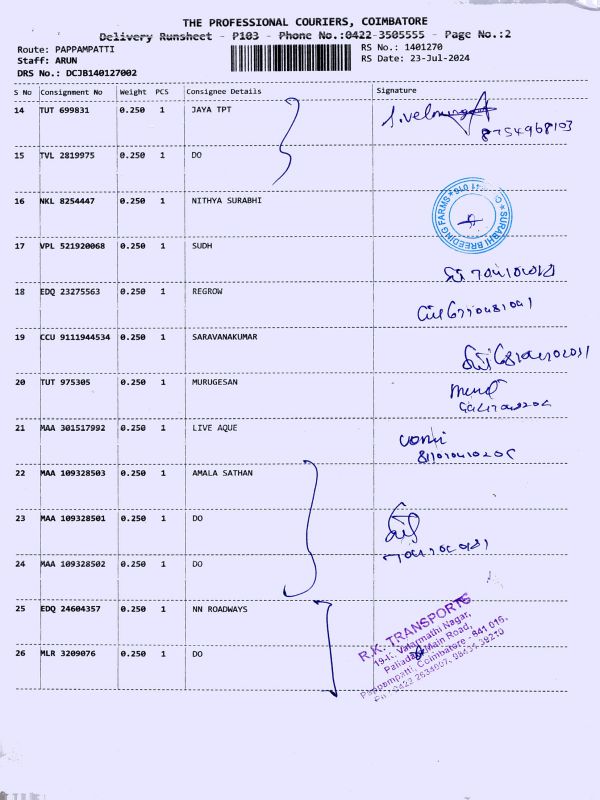 THE PROFESSIONAL COURIERS, COIMBATORE
Delivery Runsheet - P103 - Phone No.:0422-3505555 - Page No.:2
Route: PAPPAMPATTI RS No.: 1401270
Staff: ARUN RS Date: 23-Jul-2024
DRS No.: DCJB140127002
S No Consignment No Weight PCS Consignee Details Signature
14 TUT 699831 0.250 1 JAYA TPT
8754968103
15 TVL 2819975 0.250 1 DO
16 NKL 8254447 0.250 1 NITHYA SURABHI
SURABHI BREEDING FARMS
17 VPL 521920068 0.250 1 SUDH
18 EDQ 23275563 0.250 1 REGROW
19 CCU 9111944534 0.250 1 SARAVANAKUMAR
20 TUT 975305 0.250 1 MURUGESAN
21 MAA 301517992 0.250 1 LIVE AQUE
22 MAA 109328503 0.250 1 AMALA SATHAN
23 MAA 109328501 0.250 1 DO
24 MAA 109328502 0.250 1 DO
25 EDQ 24604357 0.250 1 NN ROADWAYS
26 MLR 3209076 0.250 1 DO
R.K. TRANSPORTS
Nagar,
Main Road,
Pappampatti, Coimbatore - 641 016.